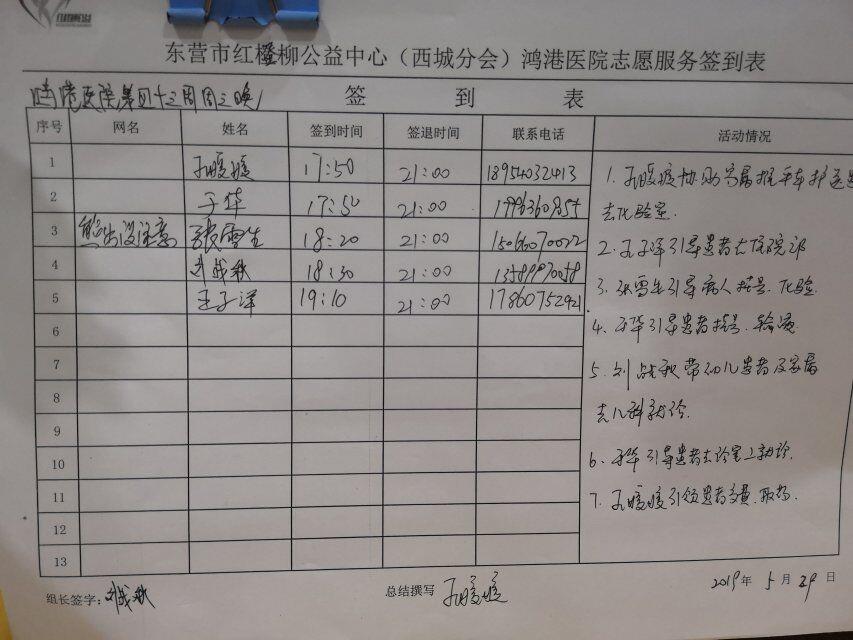 东营市红柽柳公益中心（西城分会）鸿港医院志愿服务签到表
鸿港医院第四十三周周三晚
签 到 表
序号 网名 姓名 签到时间 签退时间 联系电话 活动情况
1 孔暖暖 17:50 21:00 18954032413
2 于华 17:50 21:00
3 熊出没注意 张雪生 18:20 21:00 15066070022
4 刘战秋 18:30 21:00
5 王子洋 19:10 21:00 17860752921
6
7
8
9
10
11
12
13
1.孔暖暖协助家属推平车护送
去化验室.
2.王子洋引导患者去住院部
3.张雪生引导病人挂号.化验.
4.于华引导患者挂号.输液
5.刘战秋带幼儿患者及家属
去儿科就诊.
6.于华引导患者去诊室就诊.
7.孔暖暖引领患者交费.取药.
组长签字：刘战秋 总结撰写 孔暖暖 2019年5月29日